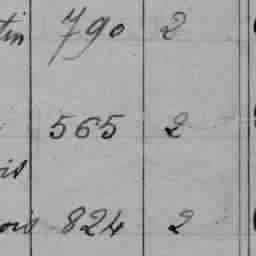 tin 790 2
565 2
is
ois 824 2